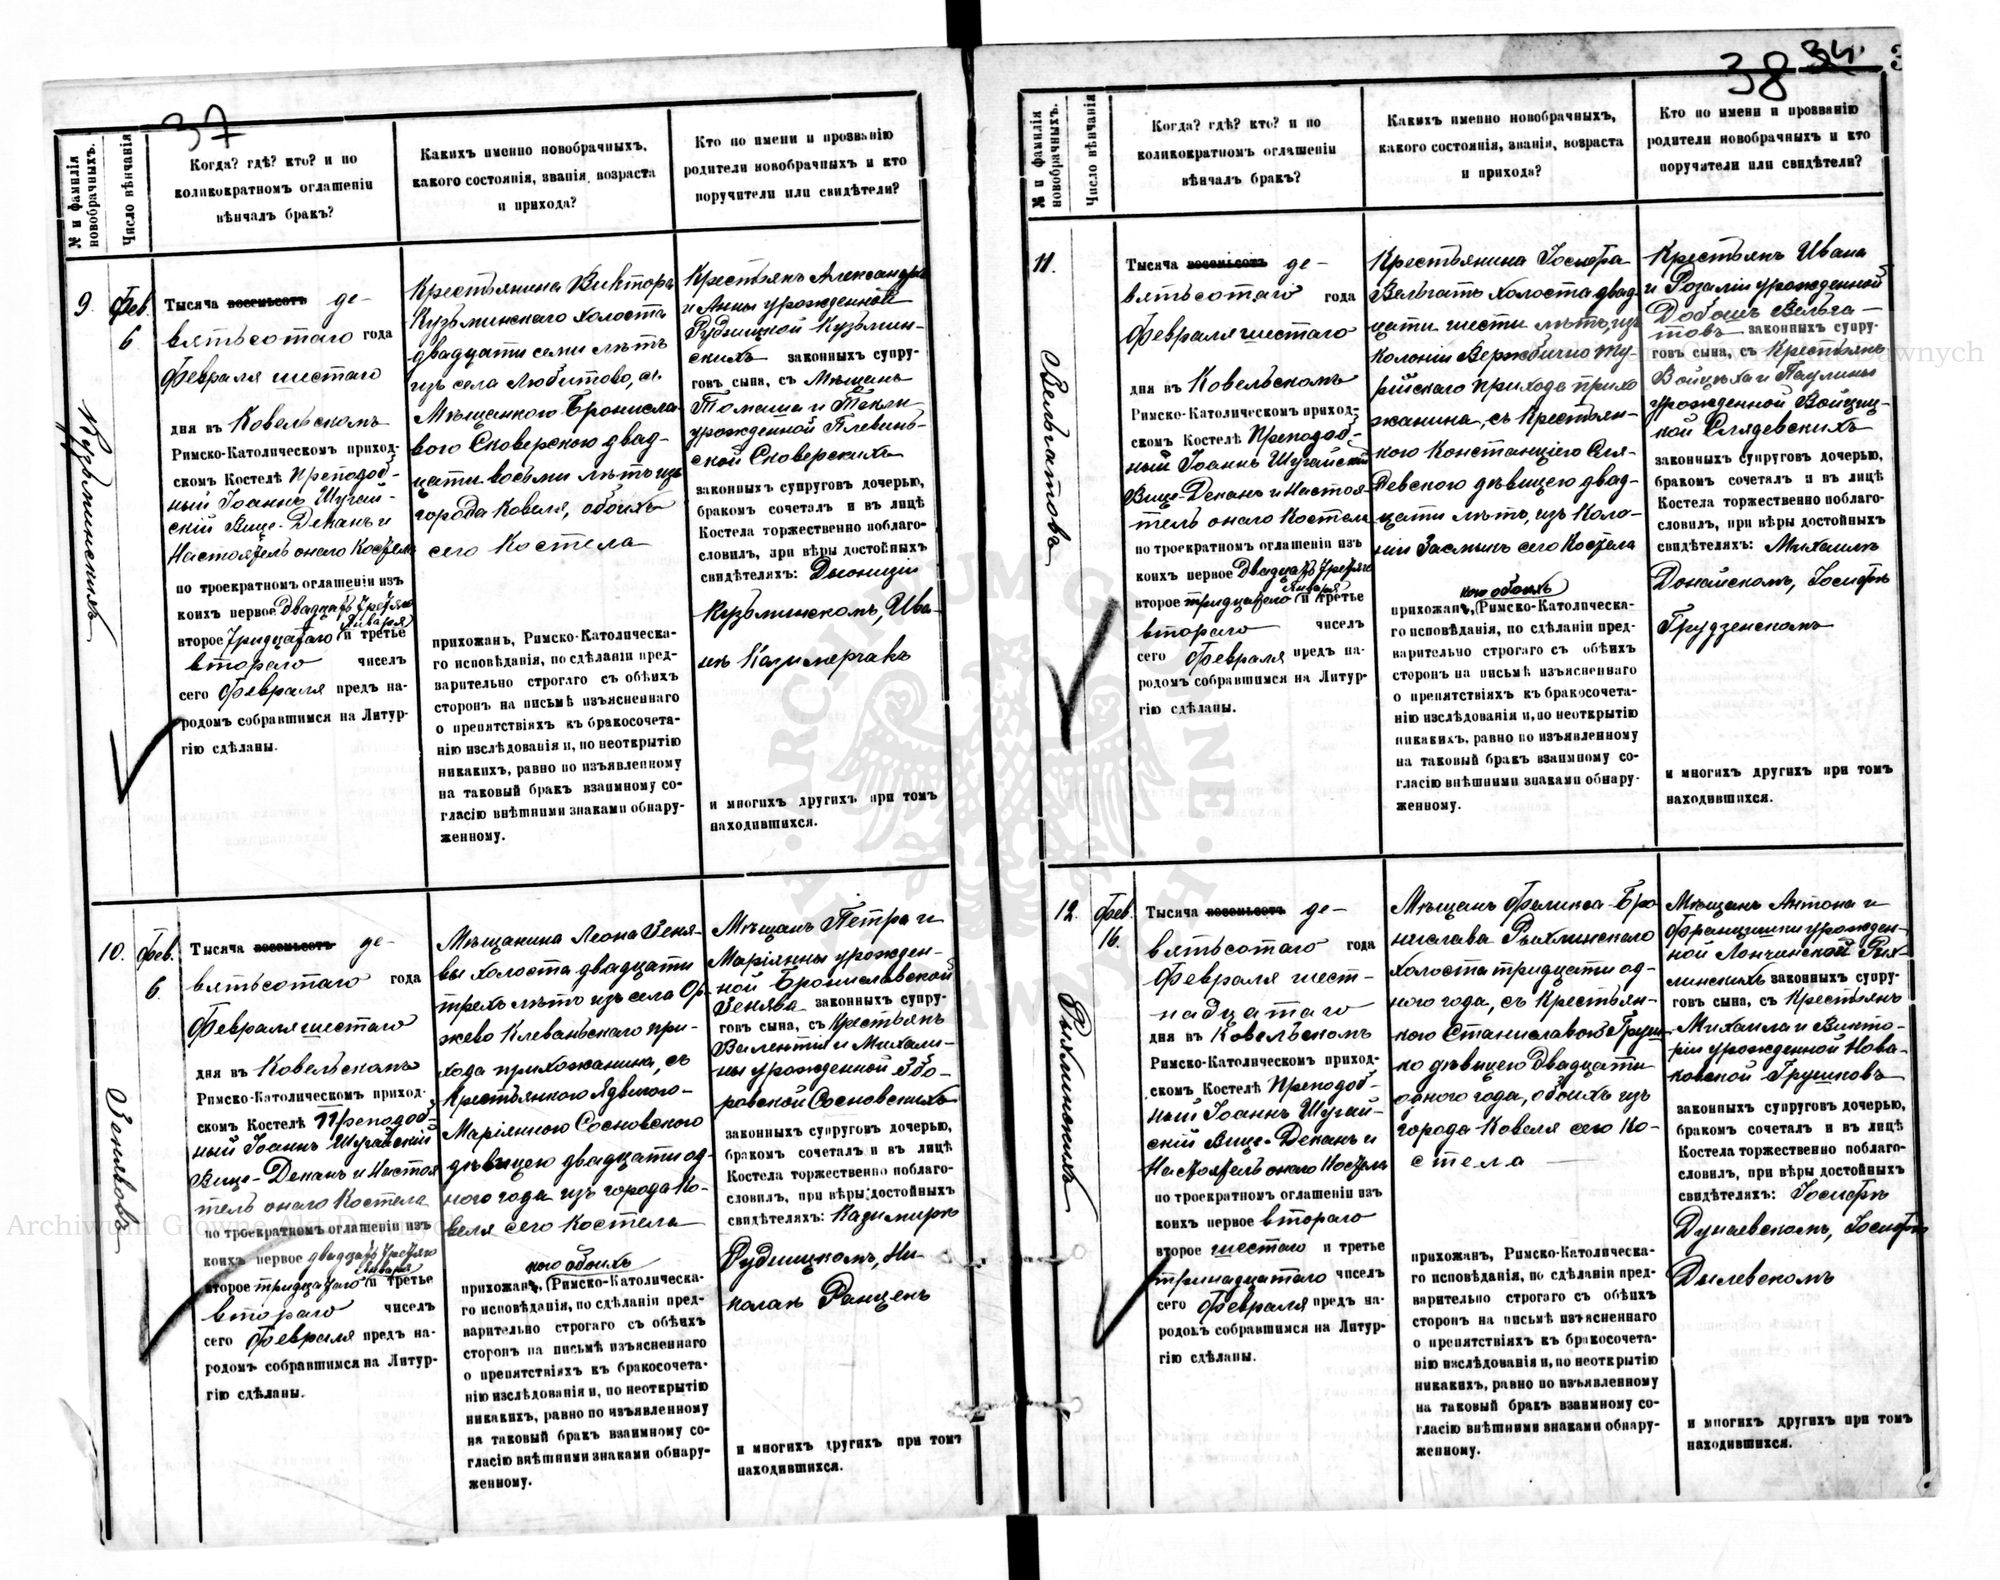 37
№ и фамилія новобрачныхъ.
Число вѣнчанія
Когда? гдѣ? кто? и по
коликократномъ оглашеніи
вѣнчалъ бракъ?
Какихъ именно новобрачныхъ,
какого состоянія, званія, возраста
и прихода?
Кто по имени и прозванію
родители новобрачныхъ и кто
поручители или свидѣтели?
9.
Кузьминскихъ
Фев.
6.
Тысяча восемьсотъ де-
вятьсотаго года
Февраля шестаго
дня въ Ковельскомъ
Римско-Католическомъ приход-
скомъ Костелѣ Преподоб-
ный Іоаннъ Шугай-
скій Вице-Деканъ и
Настоятель онаго Костела
по троекратномъ оглашеніи изъ
коихъ первое двадцать третьяго
Января
второе тридцатаго и третье
втораго чиселъ
сего Февраля предъ на-
родомъ собравшимся на Литур-
гію сдѣланы.
Крестьянина Виктора
Кузьминскаго холоста
двадцати семи лѣтъ
изъ села Любитово, съ
Мѣщанкою Бронисла-
вою Сковерскою двад-
цати восьми лѣтъ изъ
города Ковеля, обоихъ
сего Костела
прихожанъ, Римско-Католическа-
го исповѣданія, по сдѣланіи пред-
варительно строгаго съ обѣихъ
сторонъ на письмѣ изъясненнаго
о препятствіяхъ къ бракосочета-
нію изслѣдованія и, по неоткрытію
никакихъ, равно по изъявленному
на таковый бракъ взаимному со-
гласію внѣшними знаками обнару-
женному.
Крестьянъ Александра
и Анны урожденной
Рудницкой Кузьмин-
скихъ законныхъ супру-
говъ сына, съ Мѣщанъ
Томаша и Текли
урожденной Плевинь-
ской Сковерскихъ
законныхъ супруговъ дочерью,
бракомъ сочеталъ и въ лицѣ
Костела торжественно поблаго-
словилъ, при вѣры достойныхъ
свидѣтеляхъ: Діонизіи
Кузьминскомъ, Ива-
нѣ Казимерчакъ
и многихъ другихъ при томъ
находившихся.
10.
Зенявовъ
Фев.
6.
Тысяча восемьсотъ де-
вятьсотаго года
Февраля шестаго
дня въ Ковельскомъ
Римско-Католическомъ приход-
скомъ Костелѣ Преподоб-
ный Іоаннъ Шугайскій
Вице-Деканъ и Настоя-
тель онаго Костела
по троекратномъ оглашеніи изъ
коихъ первое двадцать третьяго
Января
второе тридцатаго и третье
втораго чиселъ
сего Февраля предъ на-
родомъ собравшимся на Литур-
гію сдѣланы.
Мѣщанина Леона Зеня-
вы холоста двадцати
трехъ лѣтъ изъ села Ор-
жево Клеваньскаго при-
хода прихожанина, съ
Крестьянкою Ядвигою-
Маріянною Сосновскою
дѣвицею двадцати од-
ного года изъ города Ко-
веля сего Костела
кого обоихъ
прихожанъ, (Римско-Католическа-
го исповѣданія, по сдѣланіи пред-
варительно строгаго съ обѣихъ
сторонъ на письмѣ изъясненнаго
о препятствіяхъ къ бракосочета-
нію изслѣдованія и, по неоткрытію
никакихъ, равно по изъявленному
на таковый бракъ взаимному со-
гласію внѣшними знаками обнару-
женному.
Мѣщанъ Петра и
Маріянны урожден-
ной Брониславской
Зенява законныхъ супру-
говъ сына, съ Крестьянъ
Валентія и Михали-
ны урожденной Збо-
ровской Сосновскихъ
законныхъ супруговъ дочерью,
бракомъ сочеталъ и въ лицѣ
Костела торжественно поблаго-
словилъ, при вѣры достойныхъ
свидѣтеляхъ: Казимирѣ
Рудницкомъ, Ни-
колаѣ Ранцевъ
и многихъ другихъ при томъ
находившихся.
38 34.
№ и фамилія новобрачныхъ.
Число вѣнчанія
Когда? гдѣ? кто? и по
коликократномъ оглашеніи
вѣнчалъ бракъ?
Какихъ именно новобрачныхъ,
какого состоянія, званія, возраста
и прихода?
Кто по имени и прозванію
родители новобрачныхъ и кто
поручители или свидѣтели?
11.
Вельгатовъ
Тысяча восемьсотъ де-
вятьсотаго года
Февраля шестаго
дня въ Ковельскомъ
Римско-Католическомъ приход-
скомъ Костелѣ Преподоб-
ный Іоаннъ Шугайскій
Вице-Деканъ и Настоя-
тель онаго Костела
по троекратномъ оглашеніи изъ
коихъ первое двадцать третьяго
Января
второе тридцатаго и третье
втораго чиселъ
сего Февраля предъ на-
родомъ собравшимся на Литур-
гію сдѣланы.
Крестьянина Іосифа
Вельгатъ холоста двад-
цати шести лѣтъ, изъ
Колоніи Вержбично Ту-
рійскаго прихода прихо-
жанина, съ Крестьян-
кою Констанціею Сля-
девскою дѣвицею двад-
цати лѣтъ, изъ Коло-
ніи Засмыкъ сего Костела
кого обоихъ
прихожанъ, (Римско-Католическа-
го исповѣданія, по сдѣланіи пред-
варительно строгаго съ обѣихъ
сторонъ на письмѣ изъясненнаго
о препятствіяхъ къ бракосочета-
нію изслѣдованія и, по неоткрытію
никакихъ, равно по изъявленному
на таковый бракъ взаимному со-
гласію внѣшними знаками обнару-
женному.
Крестьянъ Ивана
и Розаліи урожденной
Добошъ Вельга-
товъ законныхъ супру-
говъ сына, съ Крестьянъ
Войцѣха и Паулины
урожденной Войциц-
кой Слядевскихъ
законныхъ супруговъ дочерью,
бракомъ сочеталъ и въ лицѣ
Костела торжественно поблаго-
словилъ, при вѣры достойныхъ
свидѣтеляхъ: Михаилѣ
Донайскомъ, Іосифѣ
Грудзенскомъ
и многихъ другихъ при томъ
находившихся.
12.
Рыхлинскихъ
Фев.
16.
Тысяча восемьсотъ де-
вятьсотаго года
Февраля шест-
надцатаго
дня въ Ковельскомъ
Римско-Католическомъ приход-
скомъ Костелѣ Преподоб-
ный Іоаннъ Шугай-
скій Вице-Деканъ и
Настоятель онаго Костела
по троекратномъ оглашеніи изъ
коихъ первое втораго
второе шестаго и третье
тринадцатаго чиселъ
сего Февраля предъ на-
родомъ собравшимся на Литур-
гію сдѣланы.
Мѣщанъ Феликса-Бро-
нислава Рыхлинскаго
холоста тридцати од-
ного года, съ Крестьян-
кою Станиславою Груш-
ко дѣвицею двадцати
одного года, обоихъ изъ
города Ковеля сего Ко-
стела
прихожанъ, Римско-Католическа-
го исповѣданія, по сдѣланіи пред-
варительно строгаго съ обѣихъ
сторонъ на письмѣ изъясненнаго
о препятствіяхъ къ бракосочета-
нію изслѣдованія и, по неоткрытію
никакихъ, равно по изъявленному
на таковый бракъ взаимному со-
гласію внѣшними знаками обнару-
женному.
Мѣщанъ Антона и
Францишки урожден-
ной Лончинской Рых-
линскихъ законныхъ супру-
говъ сына, съ Крестьянъ
Михаила и Викто-
ріи урожденной Нова-
ковской Грушковъ
законныхъ супруговъ дочерью,
бракомъ сочеталъ и въ лицѣ
Костела торжественно поблаго-
словилъ, при вѣры достойныхъ
свидѣтеляхъ: Іосифѣ
Дунаевскомъ, Іосифѣ
Дылевскомъ
и многихъ другихъ при томъ
находившихся.
Archiwum Główne Akt Dawnych
Archiwum Główne Akt Dawnych
ARCHIWUM GŁÓWNE AKT DAWNYCH